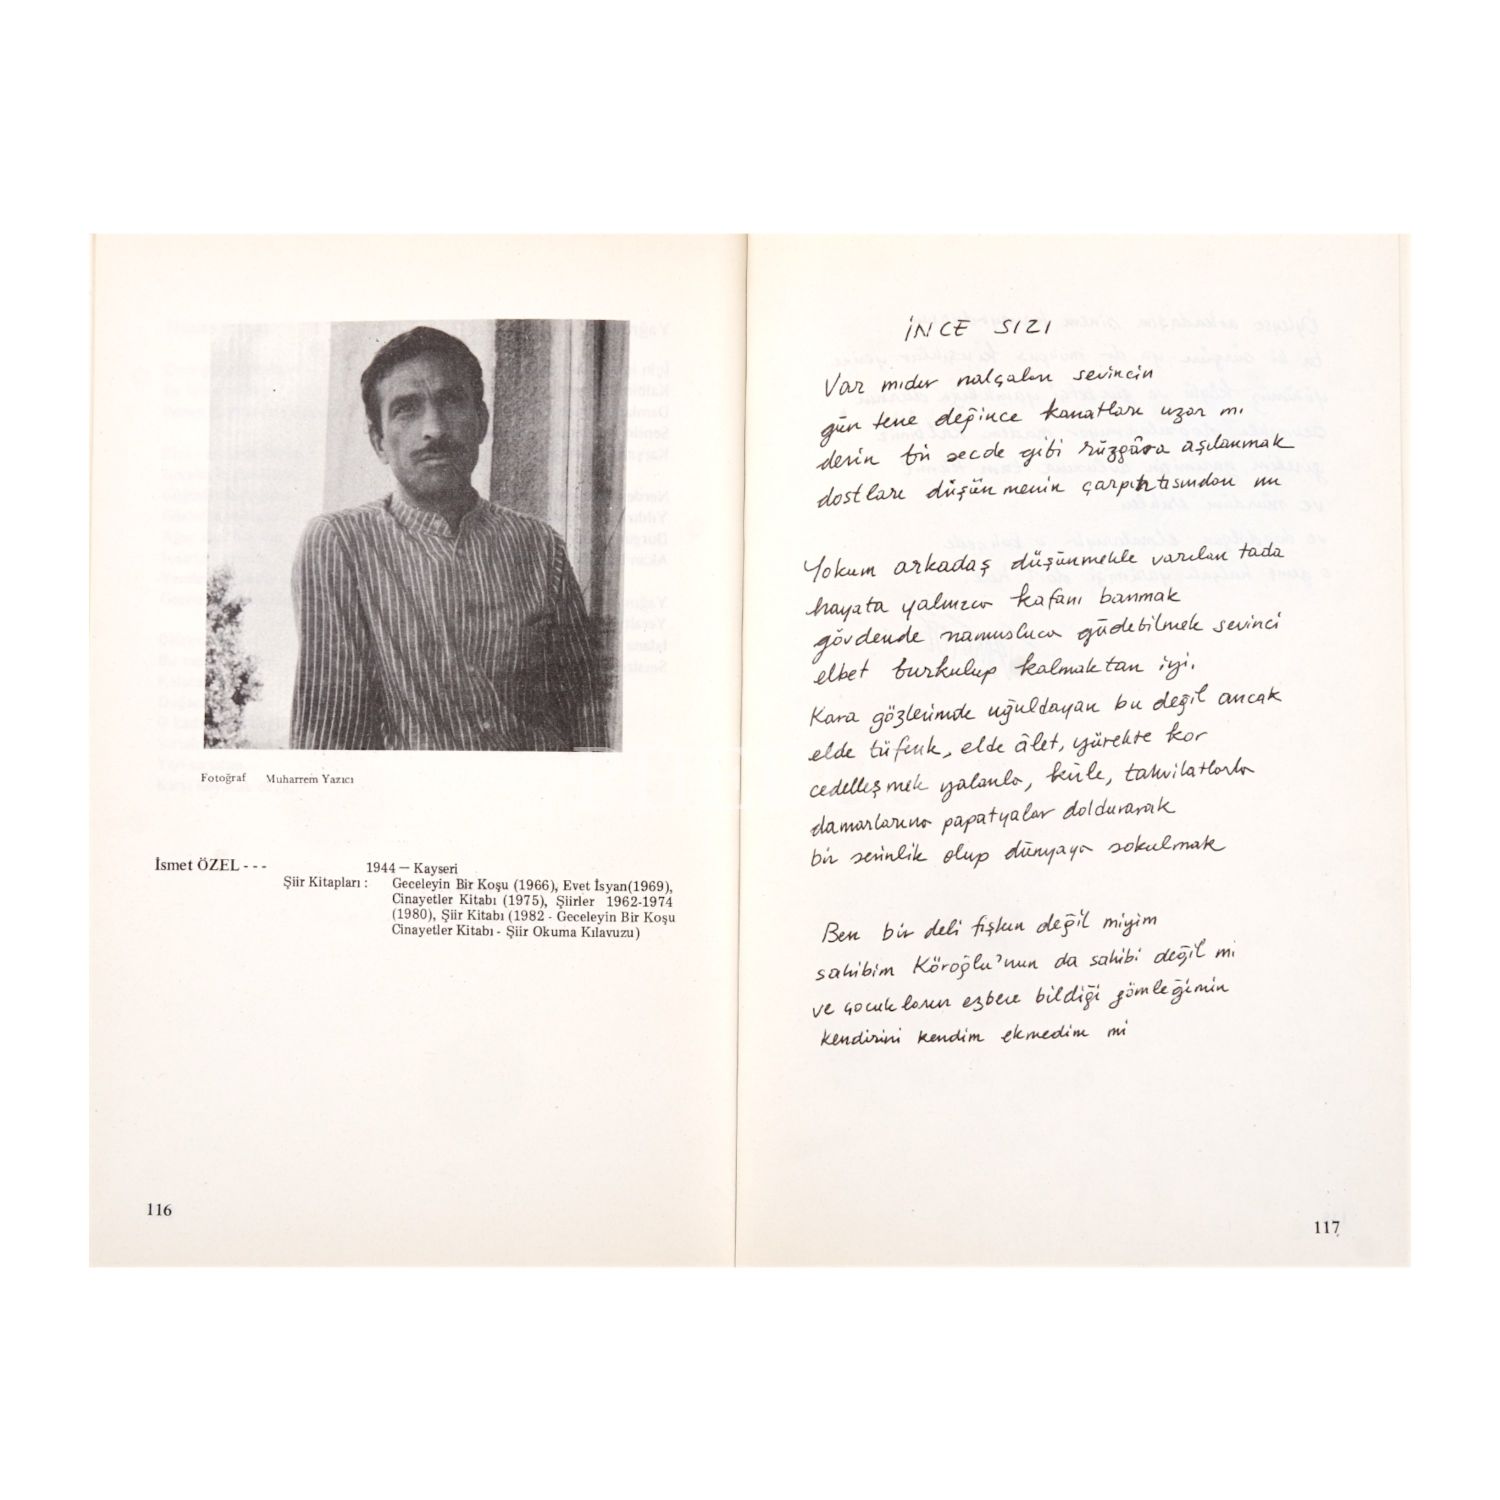 Fotoğraf Muharrem Yazıcı
İsmet ÖZEL - - - 1944 — Kayseri
Şiir Kitapları : Geceleyin Bir Koşu (1966), Evet İsyan(1969),
Cinayetler Kitabı (1975), Şiirler 1962-1974
(1980), Şiir Kitabı (1982 - Geceleyin Bir Koşu
Cinayetler Kitabı - Şiir Okuma Kılavuzu)
116
İNCE SIZI
Var mıdır nalçaları sevincin
gün tene değince kanatları uzar mı
derin bir secde gibi rüzgâra aşılanmak
dostları düşünmenin çarpıntısından mı
Yokum arkadaş düşünmekle varılan tada
hayata yalnızca kafanı banmak
gövdende namusluca güdebilmek sevinci
elbet burkulup kalmaktan iyi.
Kara gözlerimde uğuldayan bu değil ancak
elde tüfenk, elde âlet, yürekte kor
cedelleşmek yalanla, kirle, tahvilatlarla
damarlarına papatyalar doldurarak
bir serinlik olup dünyaya sokulmak
Ben bir deli fişkın değil miyim
sahibim Köroğlu'nun da sahibi değil mi
ve çocukların ezbere bildiği gömleğimin
kendirini kendim ekmedim mi
117